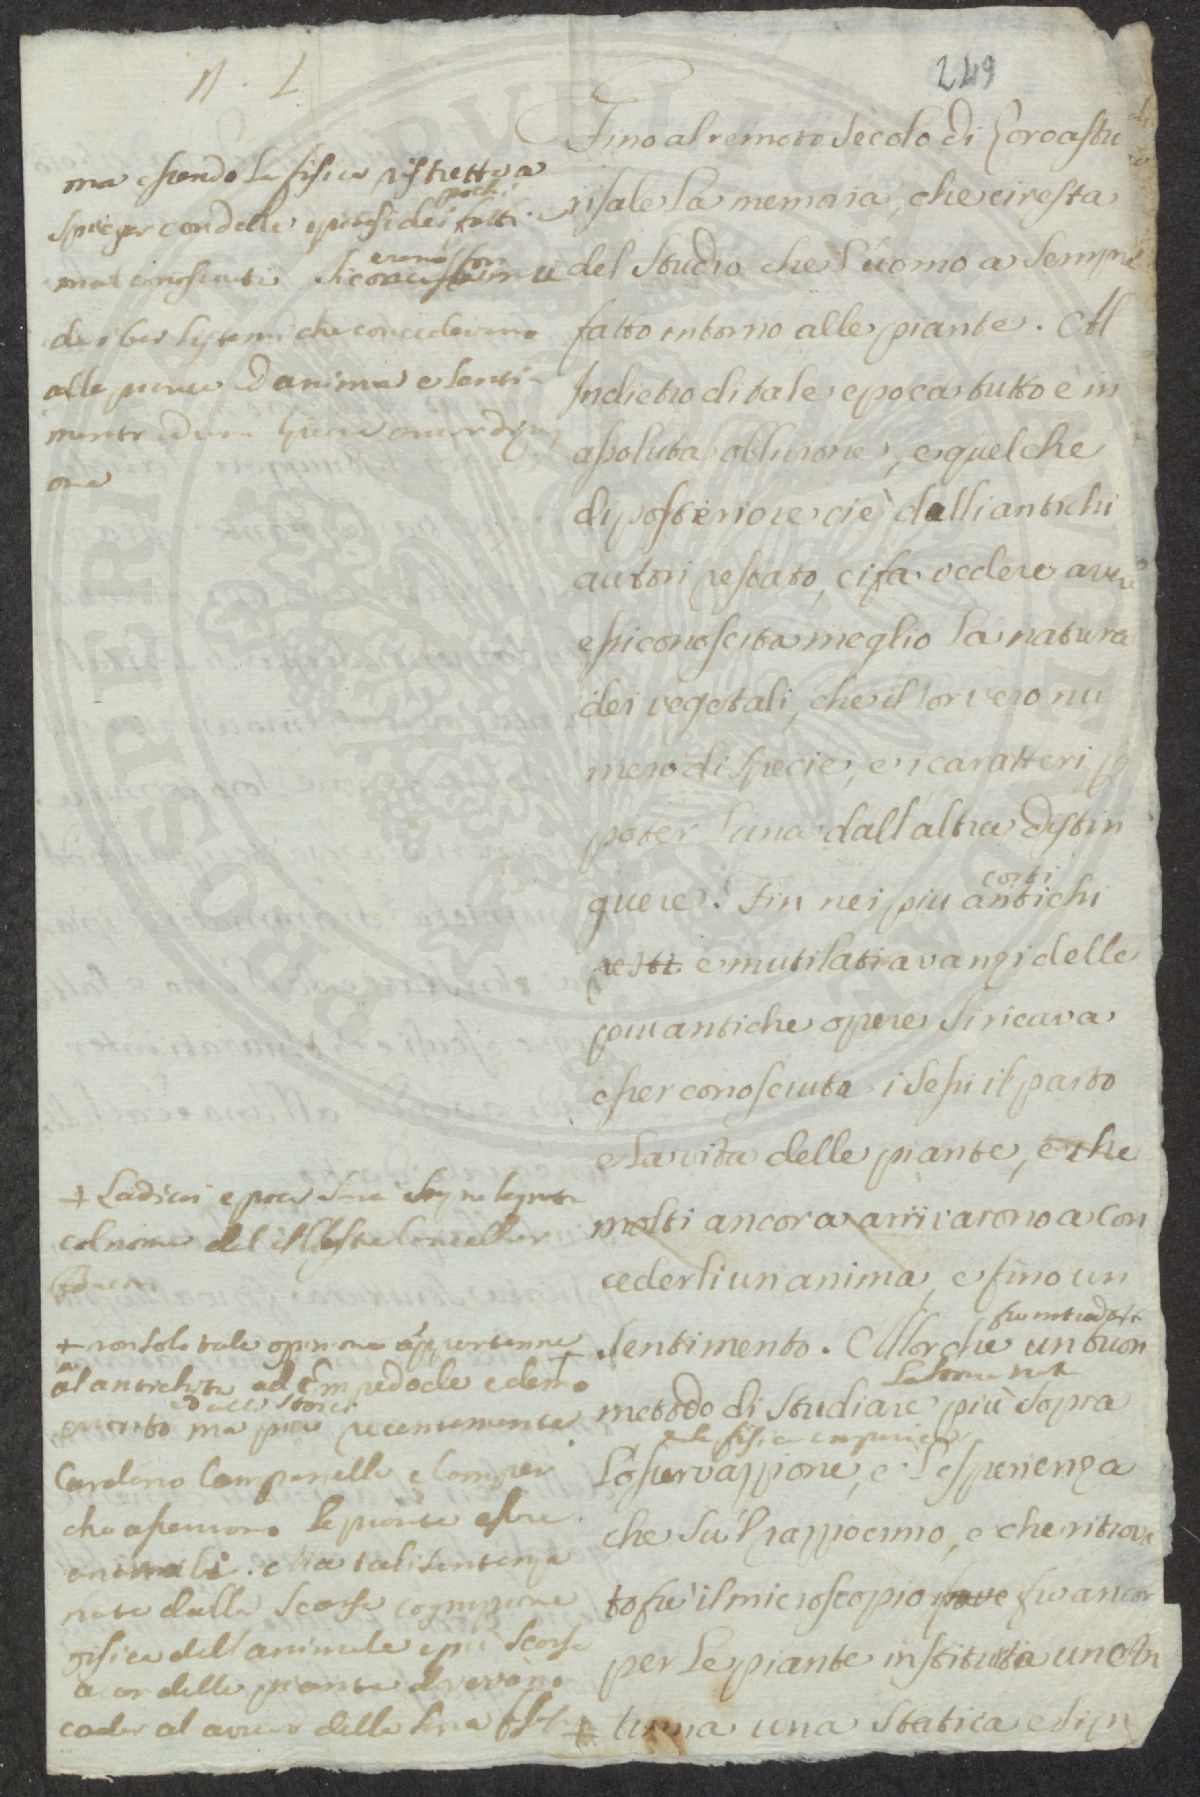 N. I.
249
Fino al remoto secolo di Zoroastro
risale la memoria, che ci resta
del studio che l'uomo a sempre
fatto intorno alle piante. Al
Indietro di tale epoca tutto è in
assoluta oblivione, e quel che
di posteriore ciè dalli antichi
autori restato, ci fa vedere aver
essi conoscita meglio la natura
dei vegetali, che il lor vero nu
mero di specie, e i caratteri p
poter l'una dall'altra distin
guere. Fin nei piu antichi
corti
resti e mutilati avanzi delle
piu antiche opere si ricava
esser conosciuta i sessi il parto
e la vita delle piante, e che
molti ancora arrivarono a con
cederli un anima, e fino un
sentimento. Allorche un buon
fu introdotto
metodo di studiare più sopra
la fisica
l'osservazzione, e l'esperienza
che su'l razzocinio, e che ritrova
to fu il microscopio fu ancor
per le piante instituita un Ana
tomia una statica e si p
ma essendo la fisica ristretta a
spiegar con delle ipotesi dei fatti
pochi
mal conosciuti si
de i bei sistemi che concedevano
alle piante d'anima e senti
mento
one
+ L'adici epoca sarà
col nome del
+ non solo tale opinione appartenne
al antichità ad Empedocle e demo
ed alli Stoici
crito ma piu recentemente
Cardano Campanella e
che asserirono le piante essere
animali. Ma tali sentenza
nate dalla scarsa cognizione
fisica dell'animale e piu scarsa
ancor delle piante dovevano
cader al arrivo della